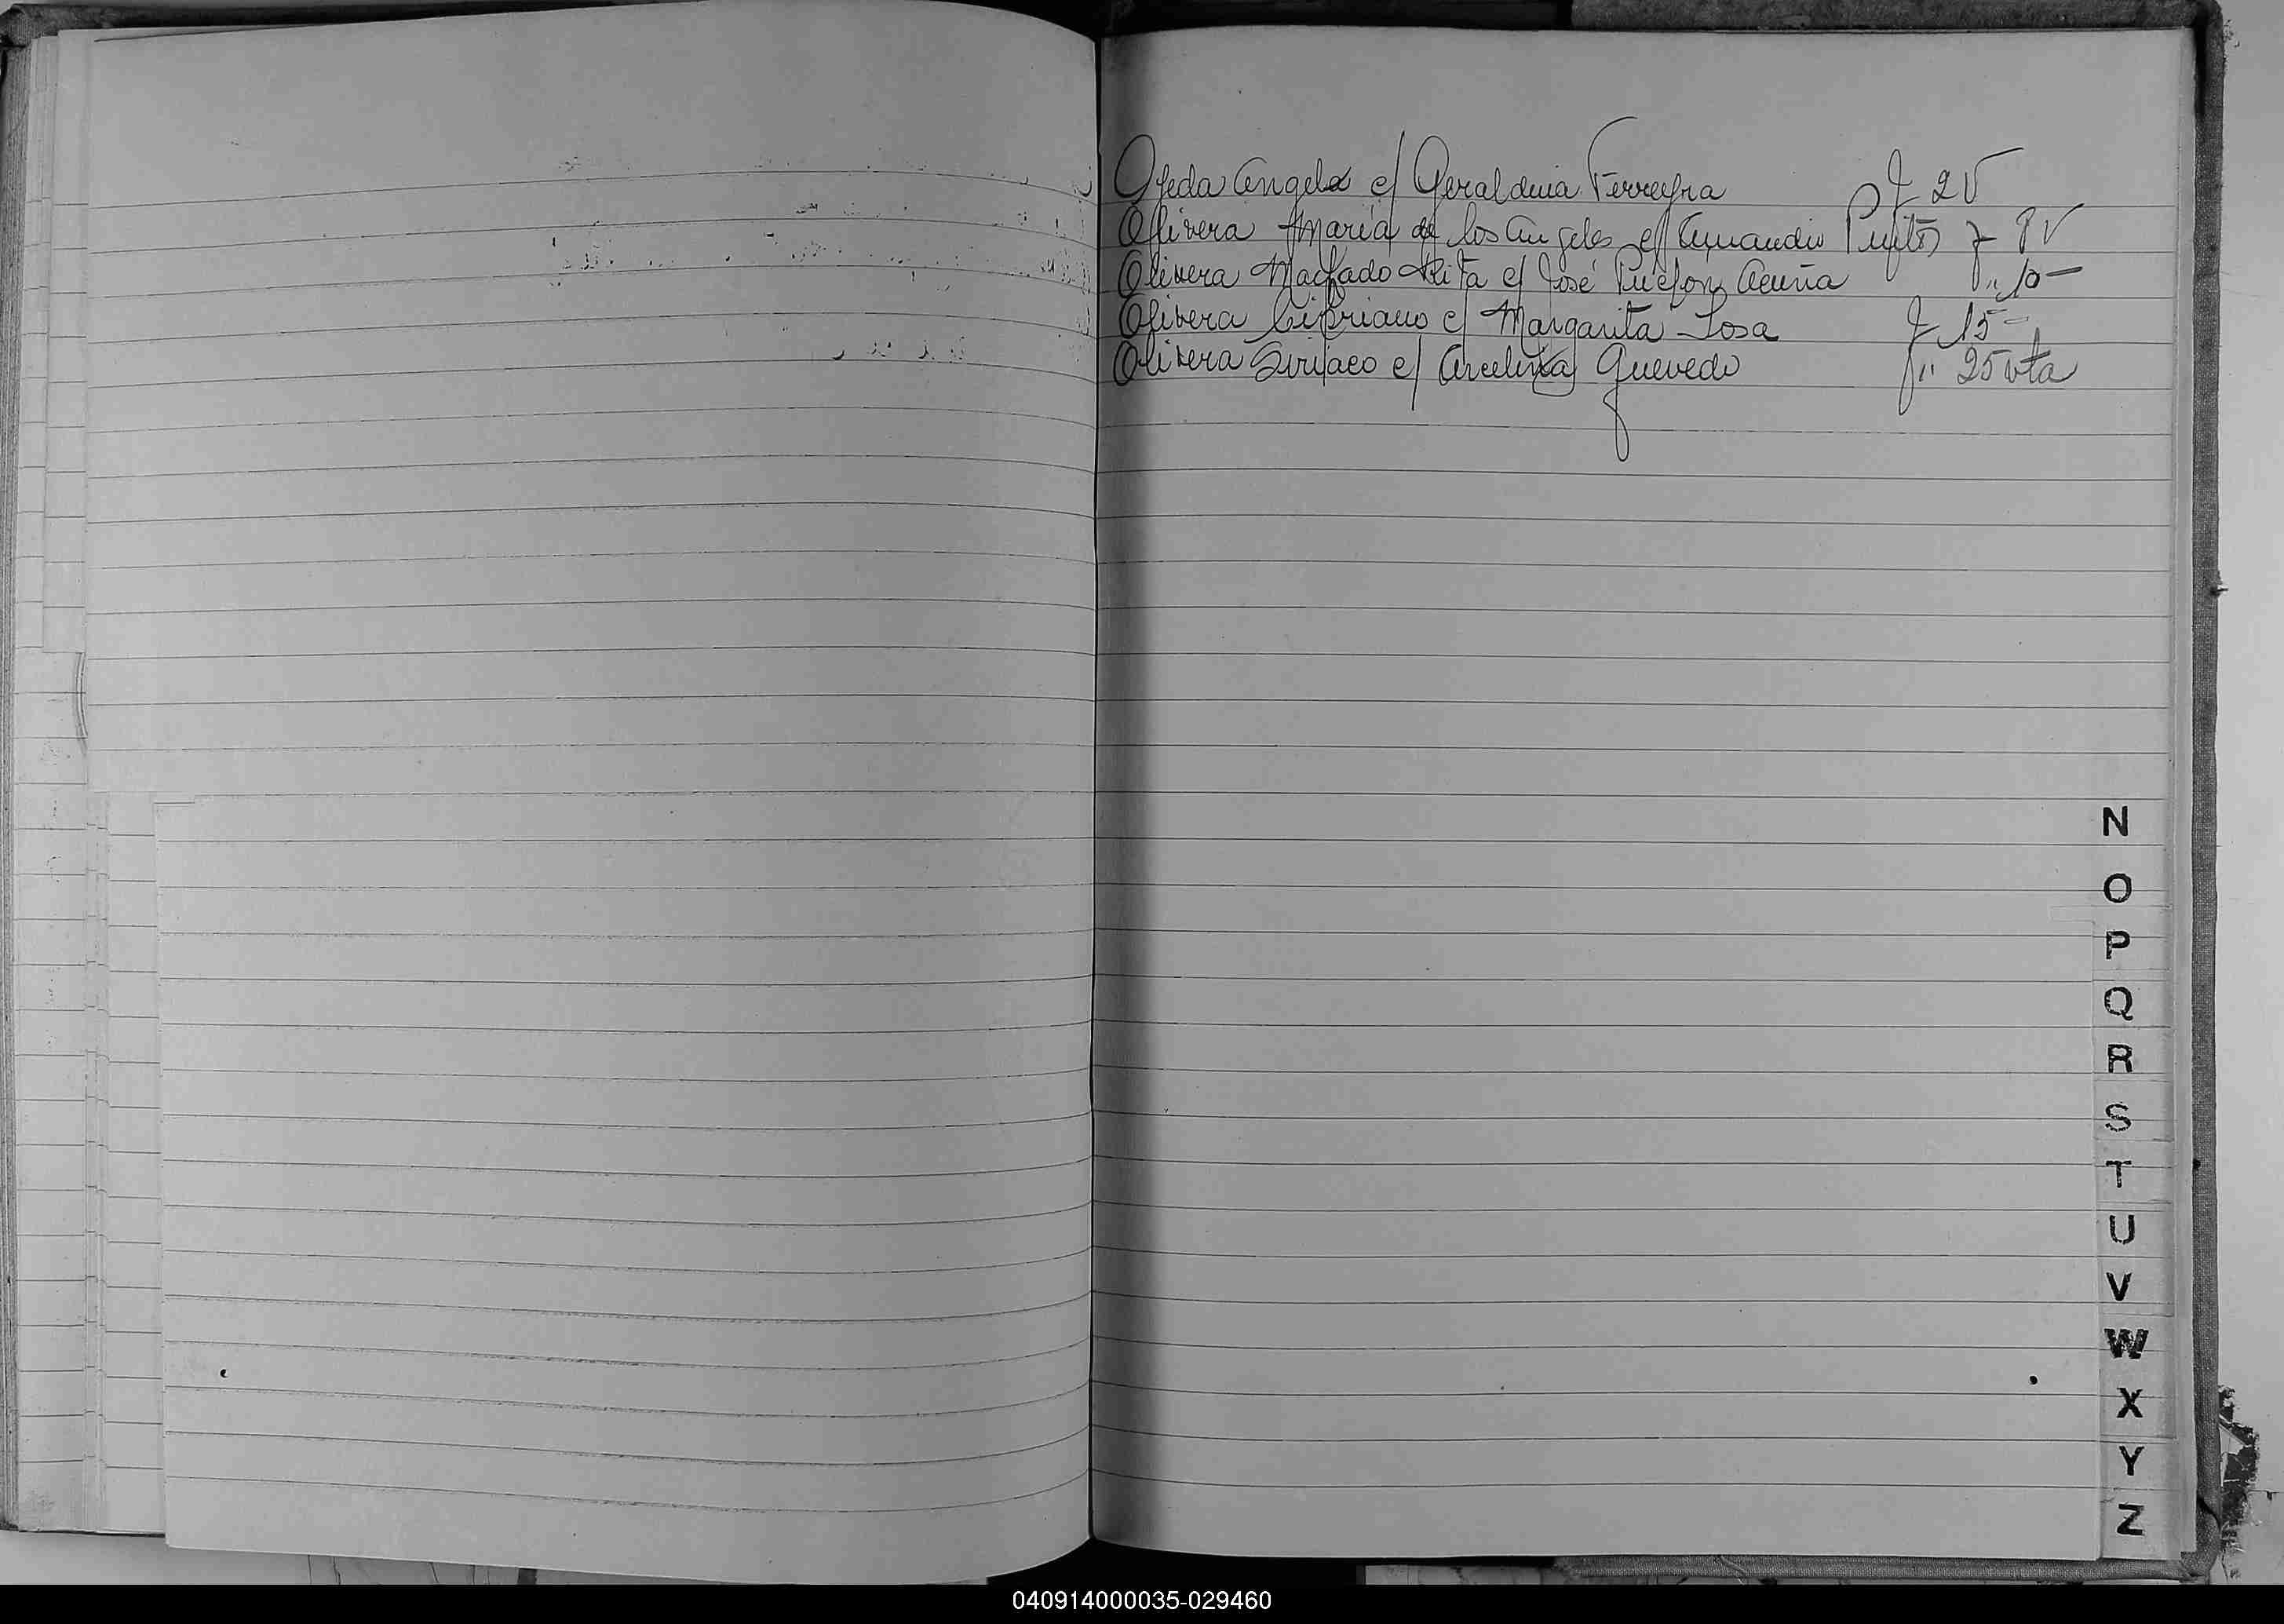 Ojeda Angela c/ Geraldina Ferreyra f 2V
Olivera María de los Angeles c/ Amandio f 8V
Olivera Machado Rita c/ José Acuña " 10-
Olivera Cipriano c/ Margarita Sosa f 15-
Olivera Siriaco c/ Arcelina Quevedo " 25 vta
N
O
P
Q
R
S
T
U
V
W
X
Y
Z
040914000035-029460